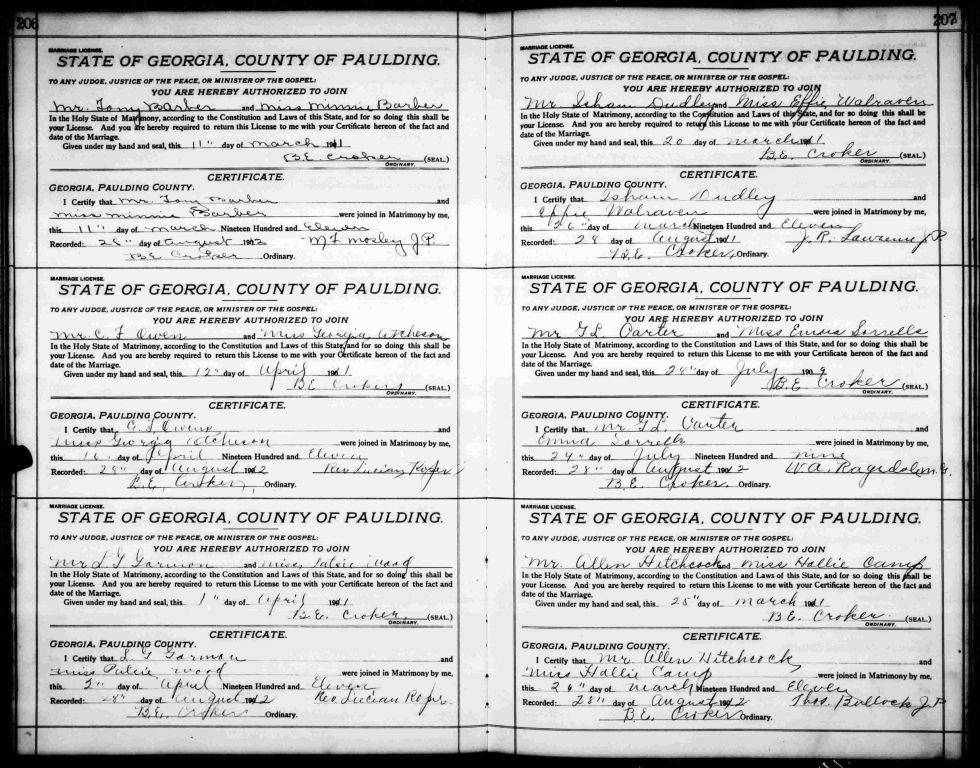 206
MARRIAGE LICENSE.
STATE OF GEORGIA, COUNTY OF PAULDING.
TO ANY JUDGE, JUSTICE OF THE PEACE, OR MINISTER OF THE GOSPEL:
YOU ARE HEREBY AUTHORIZED TO JOIN
Mr. Tony Barber and Miss Minnie Barber
In the Holy State of Matrimony, according to the Constitution and Laws of this State, and for so doing this shall be
your License. And you are hereby required to return this License to me with your Certificate hereon of the fact and
date of the Marriage.
Given under my hand and seal, this 11" day of March 1911
B.E. Croker (SEAL.)
ORDINARY.
CERTIFICATE.
GEORGIA, PAULDING COUNTY.
I Certify that Mr. Tony Barber and
Miss Minnie Barber were joined in Matrimony by me,
this 11" day of March Nineteen Hundred and Eleven
Recorded: day of August 1912 M.F. Mosley J.P.
B.E. Croker Ordinary.
MARRIAGE LICENSE.
STATE OF GEORGIA, COUNTY OF PAULDING.
TO ANY JUDGE, JUSTICE OF THE PEACE, OR MINISTER OF THE GOSPEL:
YOU ARE HEREBY AUTHORIZED TO JOIN
Mr. C. F. Owen and Miss Georgia Atcheson
In the Holy State of Matrimony, according to the Constitution and Laws of this State, and for so doing this shall be
your License. And you are hereby required to return this License to me with your Certificate hereon of the fact and
date of the Marriage.
Given under my hand and seal, this 12" day of April 1911
B.E. Croker (SEAL.)
ORDINARY.
CERTIFICATE.
GEORGIA, PAULDING COUNTY.
I Certify that Owens and
Miss Georgia Atcheson were joined in Matrimony by me,
this 16 day of April Nineteen Hundred and Eleven
Recorded: 28" day of August 1912 Rev Lucian Roper
B.E. Croker, Ordinary.
MARRIAGE LICENSE.
STATE OF GEORGIA, COUNTY OF PAULDING.
TO ANY JUDGE, JUSTICE OF THE PEACE, OR MINISTER OF THE GOSPEL:
YOU ARE HEREBY AUTHORIZED TO JOIN
Mr L. T. Garmon and Miss Palsie Wood
In the Holy State of Matrimony, according to the Constitution and Laws of this State, and for so doing this shall be
your License. And you are hereby required to return this License to me with your Certificate hereon of the fact and
date of the Marriage.
Given under my hand and seal, this 1" day of April 1911
B.E. Croker (SEAL.)
ORDINARY.
CERTIFICATE.
GEORGIA, PAULDING COUNTY.
I Certify that L. T. Garmon and
Miss Palsie Wood were joined in Matrimony by me,
this 2" day of April Nineteen Hundred and Eleven
Recorded: 28" day of August 1912 Rev Lucian Roper
B.E. Croker Ordinary.
207
MARRIAGE LICENSE.
STATE OF GEORGIA, COUNTY OF PAULDING.
TO ANY JUDGE, JUSTICE OF THE PEACE, OR MINISTER OF THE GOSPEL:
YOU ARE HEREBY AUTHORIZED TO JOIN
Mr. Isham Dudley and Miss Effie Walraven
In the Holy State of Matrimony, according to the Constitution and Laws of this State, and for so doing this shall be
your License. And you are hereby required to return this License to me with your Certificate hereon of the fact and
date of the Marriage.
Given under my hand and seal, this 20 day of March 1911
B.E. Croker (SEAL.)
ORDINARY.
CERTIFICATE.
GEORGIA, PAULDING COUNTY.
I Certify that Isham Dudley and
Effie Walraven were joined in Matrimony by me,
this 26" day of March Nineteen Hundred and Eleven
Recorded: 28 day of August 1911 J. R. Lawrence J.P.
B.E. Croker, Ordinary.
MARRIAGE LICENSE.
STATE OF GEORGIA, COUNTY OF PAULDING.
TO ANY JUDGE, JUSTICE OF THE PEACE, OR MINISTER OF THE GOSPEL:
YOU ARE HEREBY AUTHORIZED TO JOIN
Mr G L Carter and Miss Emma Sorrells
In the Holy State of Matrimony, according to the Constitution and Laws of this State, and for so doing this shall be
your License. And you are hereby required to return this License to me with your Certificate hereon of the fact and
date of the Marriage.
Given under my hand and seal, this 28" day of July 1909
B.E. Croker (SEAL.)
ORDINARY.
CERTIFICATE.
GEORGIA, PAULDING COUNTY.
I Certify that Mr. G L Carter and
Emma Sorrells were joined in Matrimony by me,
this 29" day of July Nineteen Hundred and nine
Recorded: 28" day of August 1912 W.A. Ragsdale M.G.
B.E. Croker. Ordinary.
MARRIAGE LICENSE.
STATE OF GEORGIA, COUNTY OF PAULDING.
TO ANY JUDGE, JUSTICE OF THE PEACE, OR MINISTER OF THE GOSPEL:
YOU ARE HEREBY AUTHORIZED TO JOIN
Mr. Allen Hitchcock and Miss Hallie Camp
In the Holy State of Matrimony, according to the Constitution and Laws of this State, and for so doing this shall be
your License. And you are hereby required to return this License to me with your Certificate hereon of the fact and
date of the Marriage.
Given under my hand and seal, this 25" day of March 1911
B.E. Croker (SEAL.)
ORDINARY.
CERTIFICATE.
GEORGIA, PAULDING COUNTY.
I Certify that Mr. Allen Hitchcock and
Miss Hallie Camp were joined in Matrimony by me,
this 26" day of March Nineteen Hundred and Eleven
Recorded: 28" day of August 1912 Thos. Bullock J.P.
B.E. Croker Ordinary.